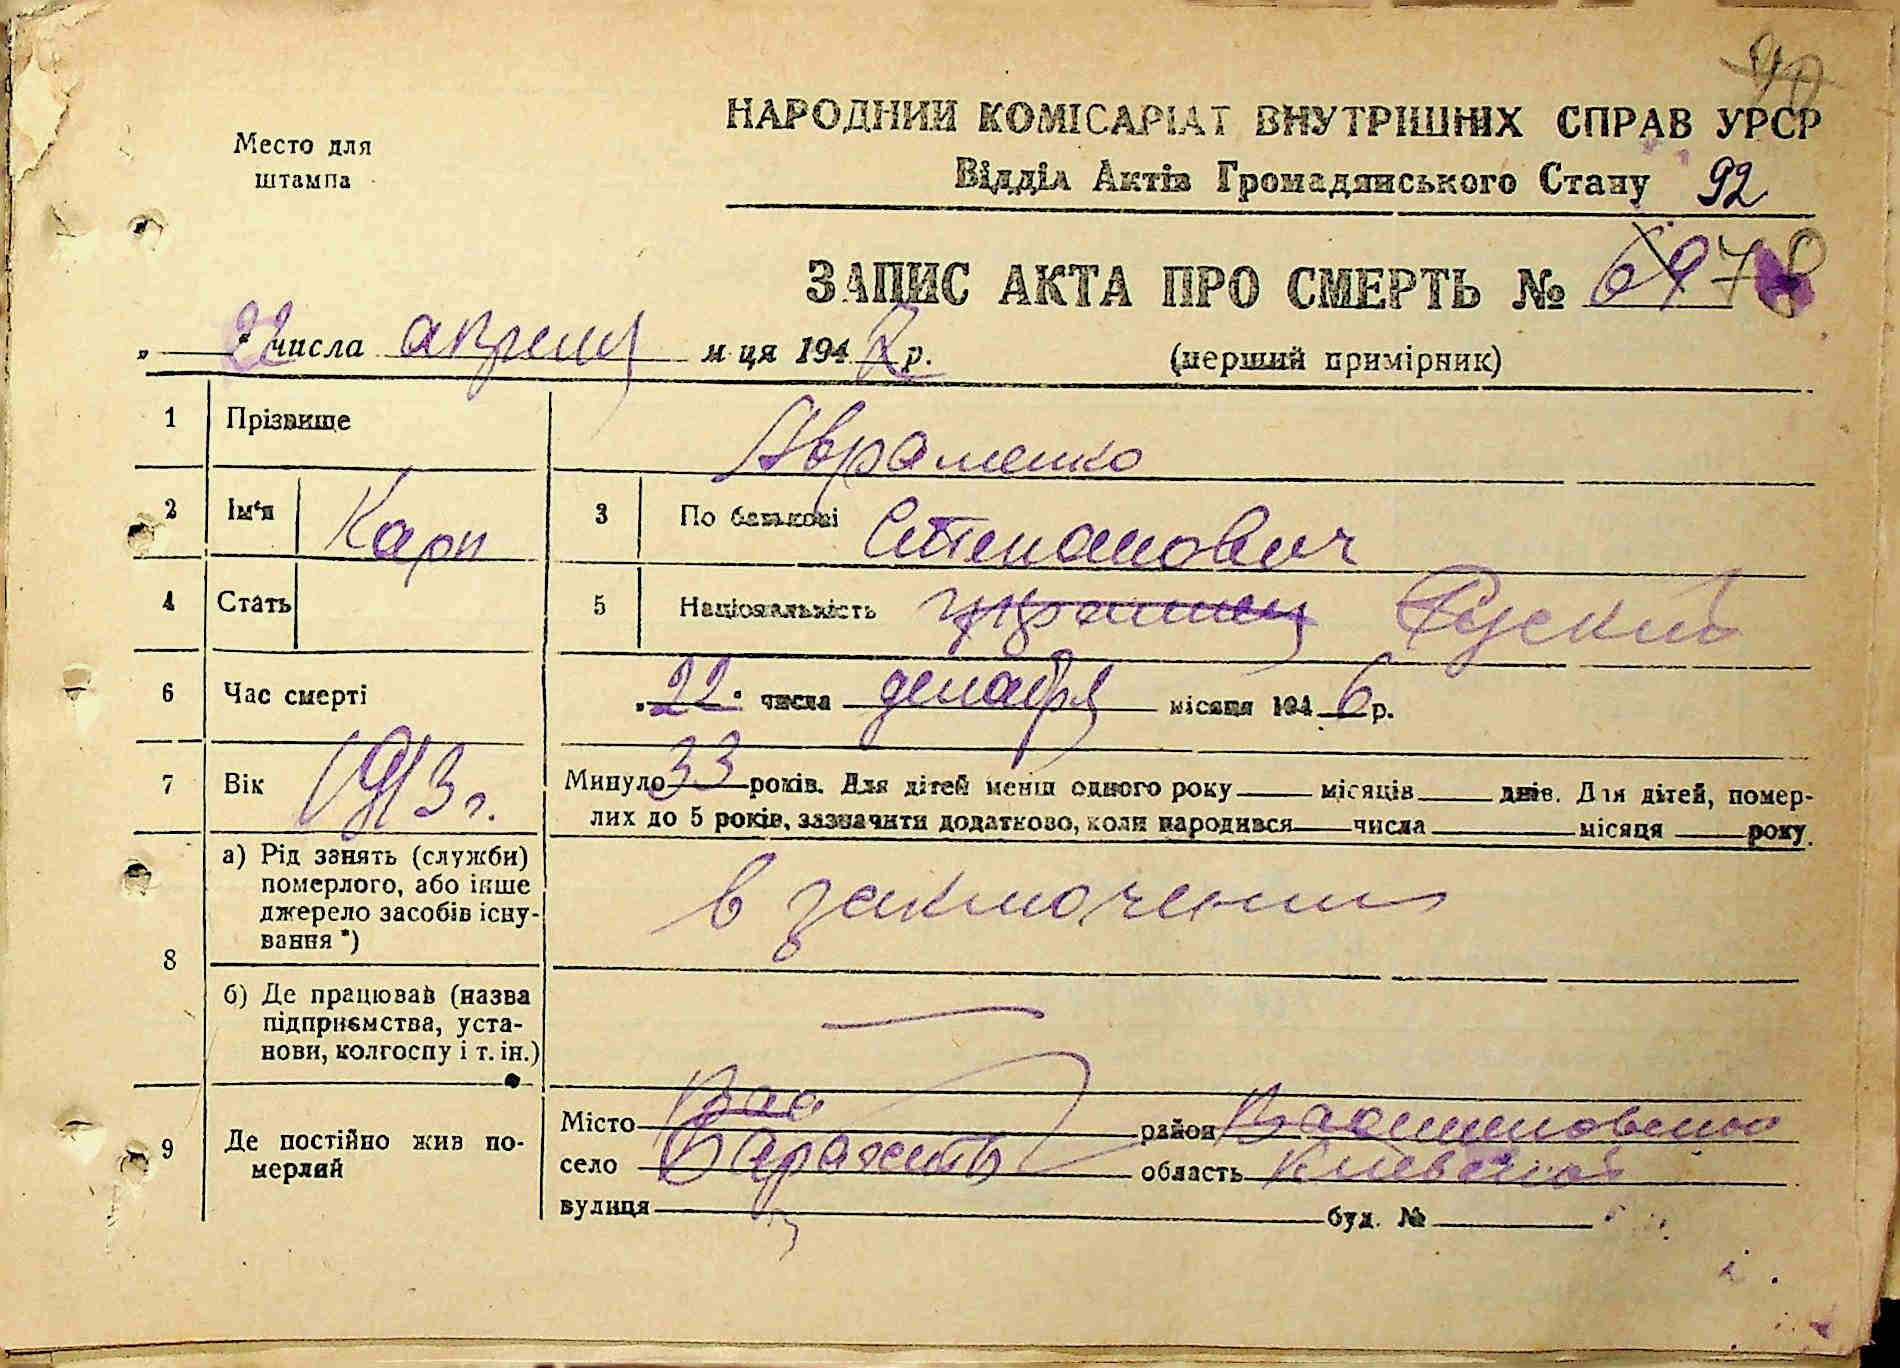 92
НАРОДНИЙ КОМІСАРІАТ ВНУТРІШНІХ СПРАВ УРСР
Место для штампа
Відділ Актів Громадянського Стану
ЗАПИС АКТА ПРО СМЕРТЬ № 69 78
„ 22 " числа апреля м-ця 1947 р.
(перший примірник)
1 Прізвище Авраменко
2 Ім'я Карп 3 По батькові Степанович
4 Стать 5 Національність украинец Руский
6 Час смерті „22" числа декабря місяця 1946 р.
7 Вік 1913 г. Минуло 33 років. Для дітей менш одного року місяців днів. Для дітей, помер-
лих до 5 років, зазначити додатково, коли народився числа місяця року.
8 а) Рід занять (служби)
померлого, або інше
джерело засобів існу-
вання *)
в заключении
б) Де працював (назва
підприємства, уста-
нови, колгоспу і т. ін.)
9 Де постійно жив по-
мерлий
Місто район
село область Киевской
вулиця буд. №